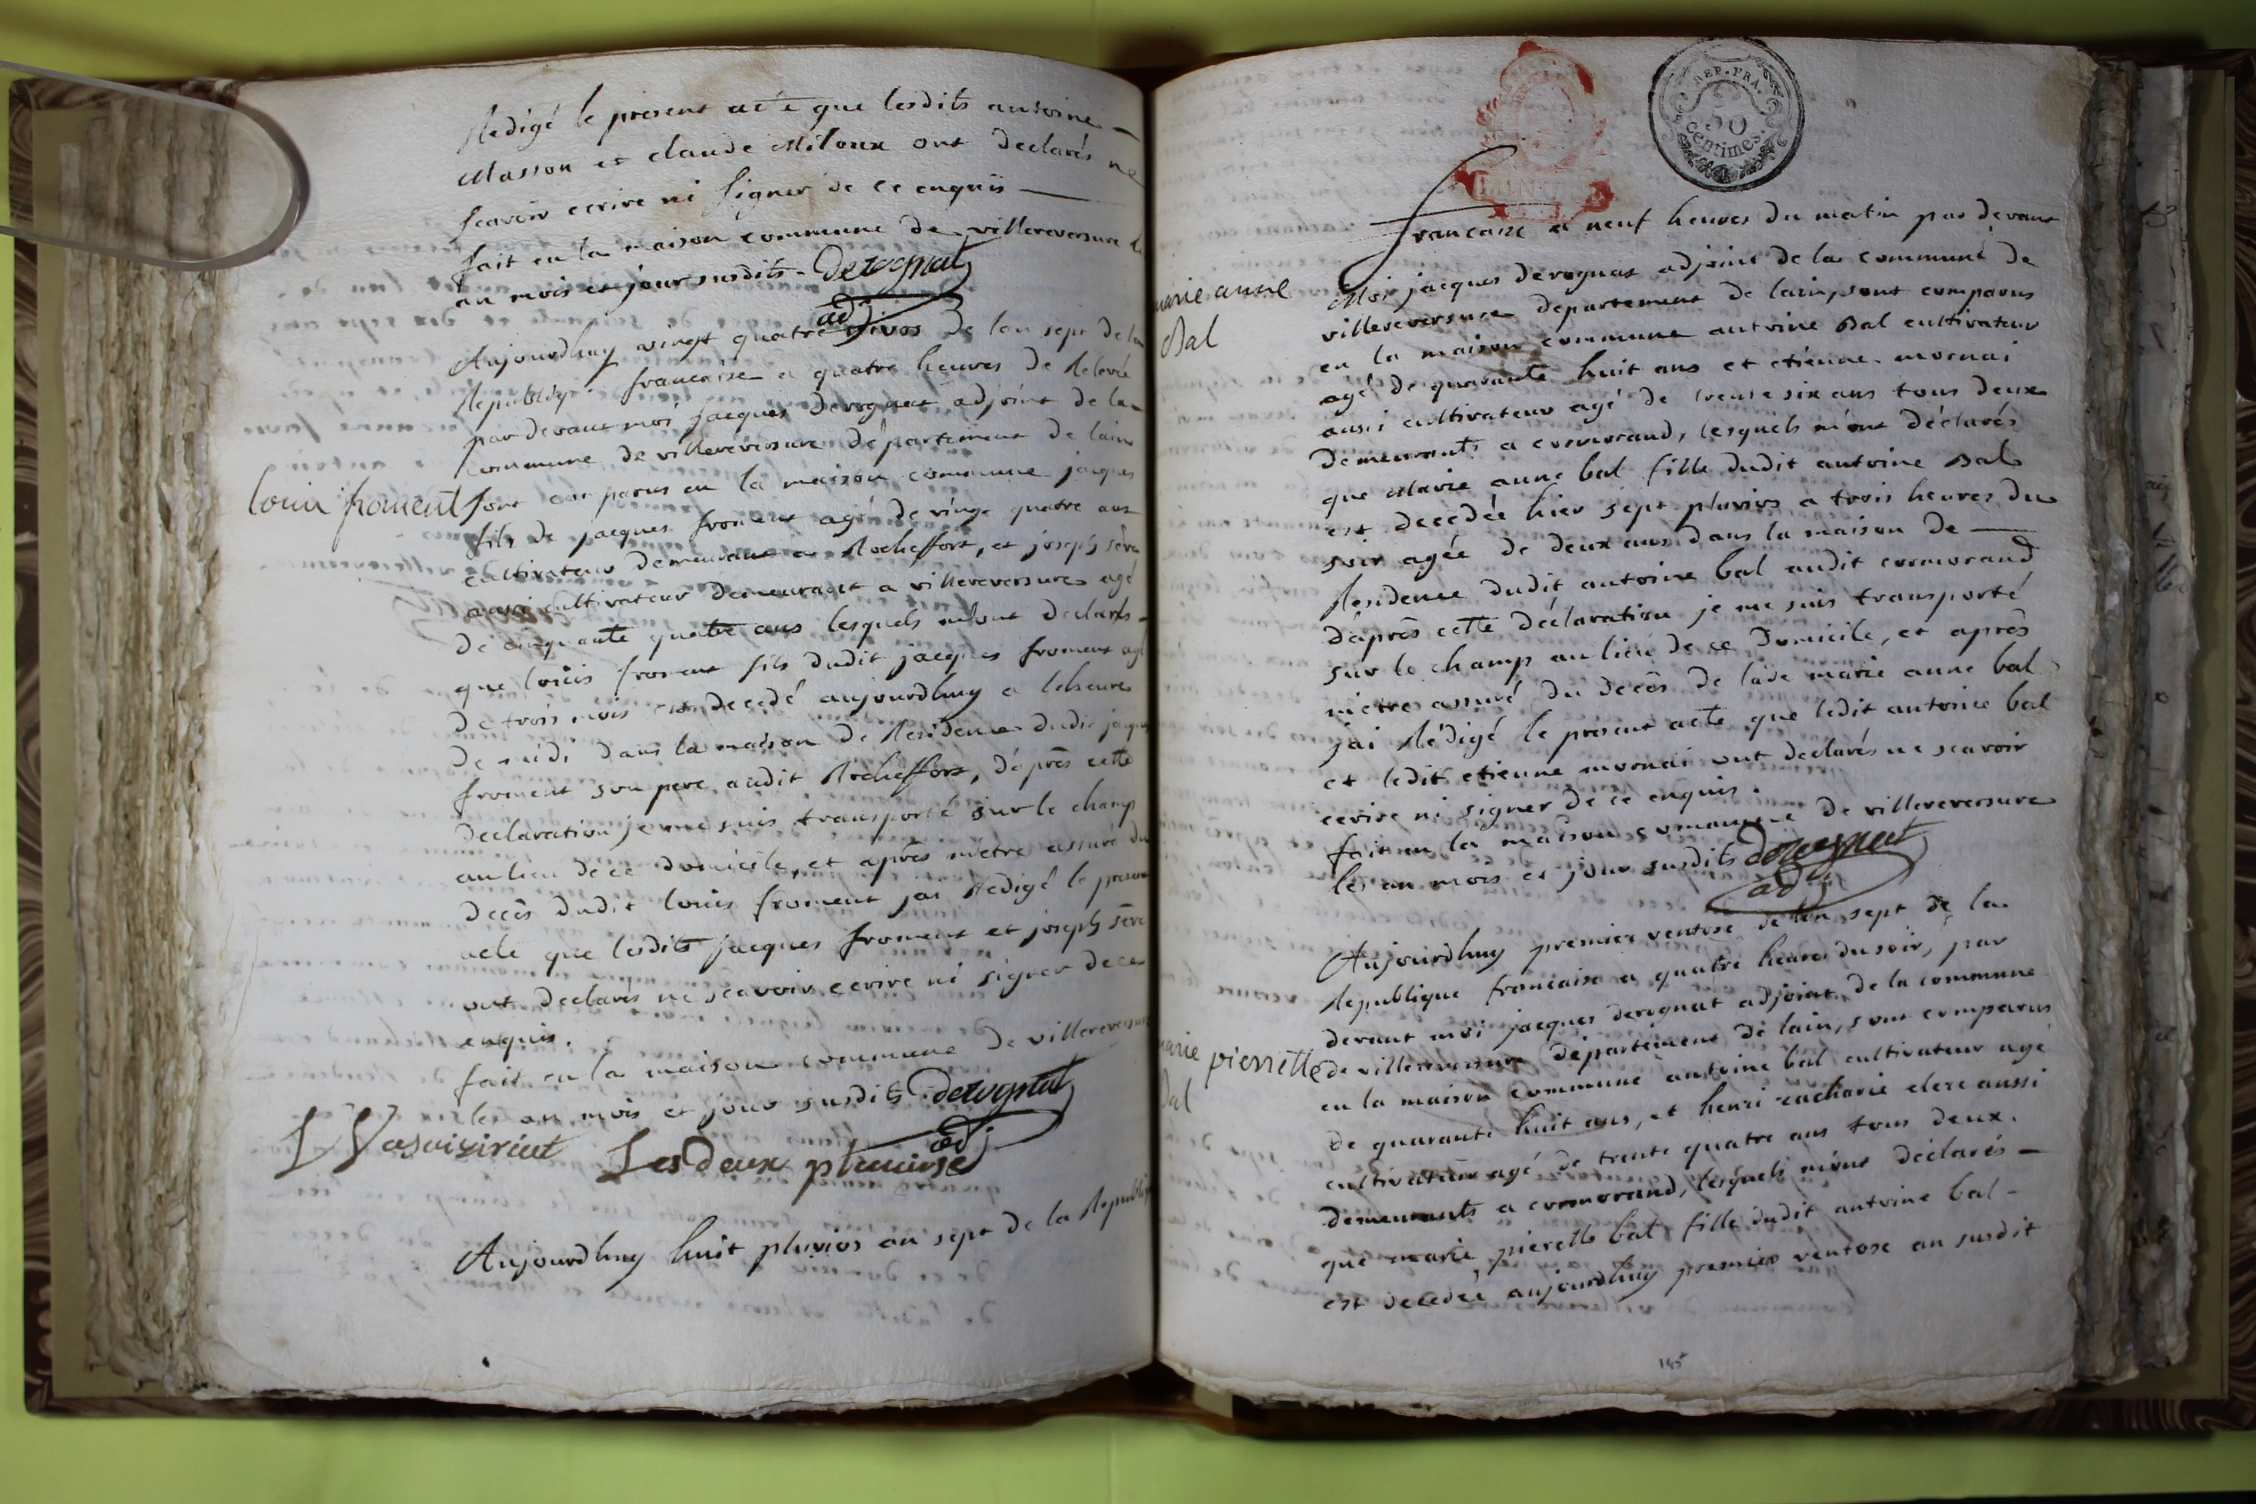 Redigé le present acte que lesdits antoine
Masson et claude Miloux ont declarés ne
scavoir ecrire ni signer de ce enquis
fait en la maison commune de villereversure
an mois et jour susdits. derognat
adj
Aujourdhuy vingt quatre nivos de lan sept de la
Republiq francaise a quatre heures de Relevée
par devant moi jacques derognat adjoint de la
commune de villereversure département de lain
louis froment
sont comparus en la maison commune jacques
fils de jacques froment agé de vingt quatre ans
cultivateur demeurant a Rocheffort, et joseph sève
aussi cultivateur demeurant a villereversure agé
de cinquante quatre ans lesquels m'ont declarés
que louis froment fils dudit jacques froment agé
de trois mois est decedé aujourdhuy a lheure
de midi dans la maison de Residence dudit jacques
froment son pere audit Rocheffort, d'après cette
declaration je me suis transporté sur le champ
au lieu de ce domicile, et après mètre assuré du
decès dudit louis froment jai Redigé le present
acte que lesdits jacques froment et joseph sève
ont declarés ne scavoir ecrire ni signer de ce
enquis.
fait en la maison commune de villereversure
les an mois et jour susdits derognat
adj
Les deux pluviose
Aujourdhuy huit pluvios an sept de la Republiq
REP. FRA.
50
centimes.
francaise a neuf heures du matin par devant
marie anne
Bal
Moi jacques derognat adjoint de la commune de
villereversure departement de lain, sont comparus
en la maison commune antoine Bal cultivateur
agé de quarante huit ans et etienne mornai
aussi cultivateur agé de trente six ans tous deux
demeurants a cormorand, lesquels m'ont déclarés
que Marie anne bal fille dudit antoine Bal
est decedée hier sept pluvios a trois heures du
soir agée de deux ans dans la maison de
Residence dudit antoine bal audit cormorand
d'après cette déclaration je me suis transporté
sur le champ au lieu de ce Domicile, et après
mètre assuré du decès de lade marie anne bal
jai Rédigé le present acte que ledit antoine bal
et ledit etienne mornai ont declarés ne scavoir
ecrire ni signer de ce enquis.
fait en la maison commune de villereversure
les an mois et jour susdits derognat
adj
Aujourdhuy premier ventose de lan sept de la
Republique francaise a quatre heures du soir, par
devant moi jacques derognat adjoint de la commune
marie pierrette
Bal
de villereversure département de lain, sont comparus
en la maison commune antoine bal cultivateur agé
de quarante huit ans, et henri zacharie clerc aussi
cultivateur agé de trente quatre ans tous deux
demeurants a cormorand, lesquels m'ont déclarés
que marie pierette bal fille dudit antoine bal
est decedée aujourdhuy premier ventose an susdit